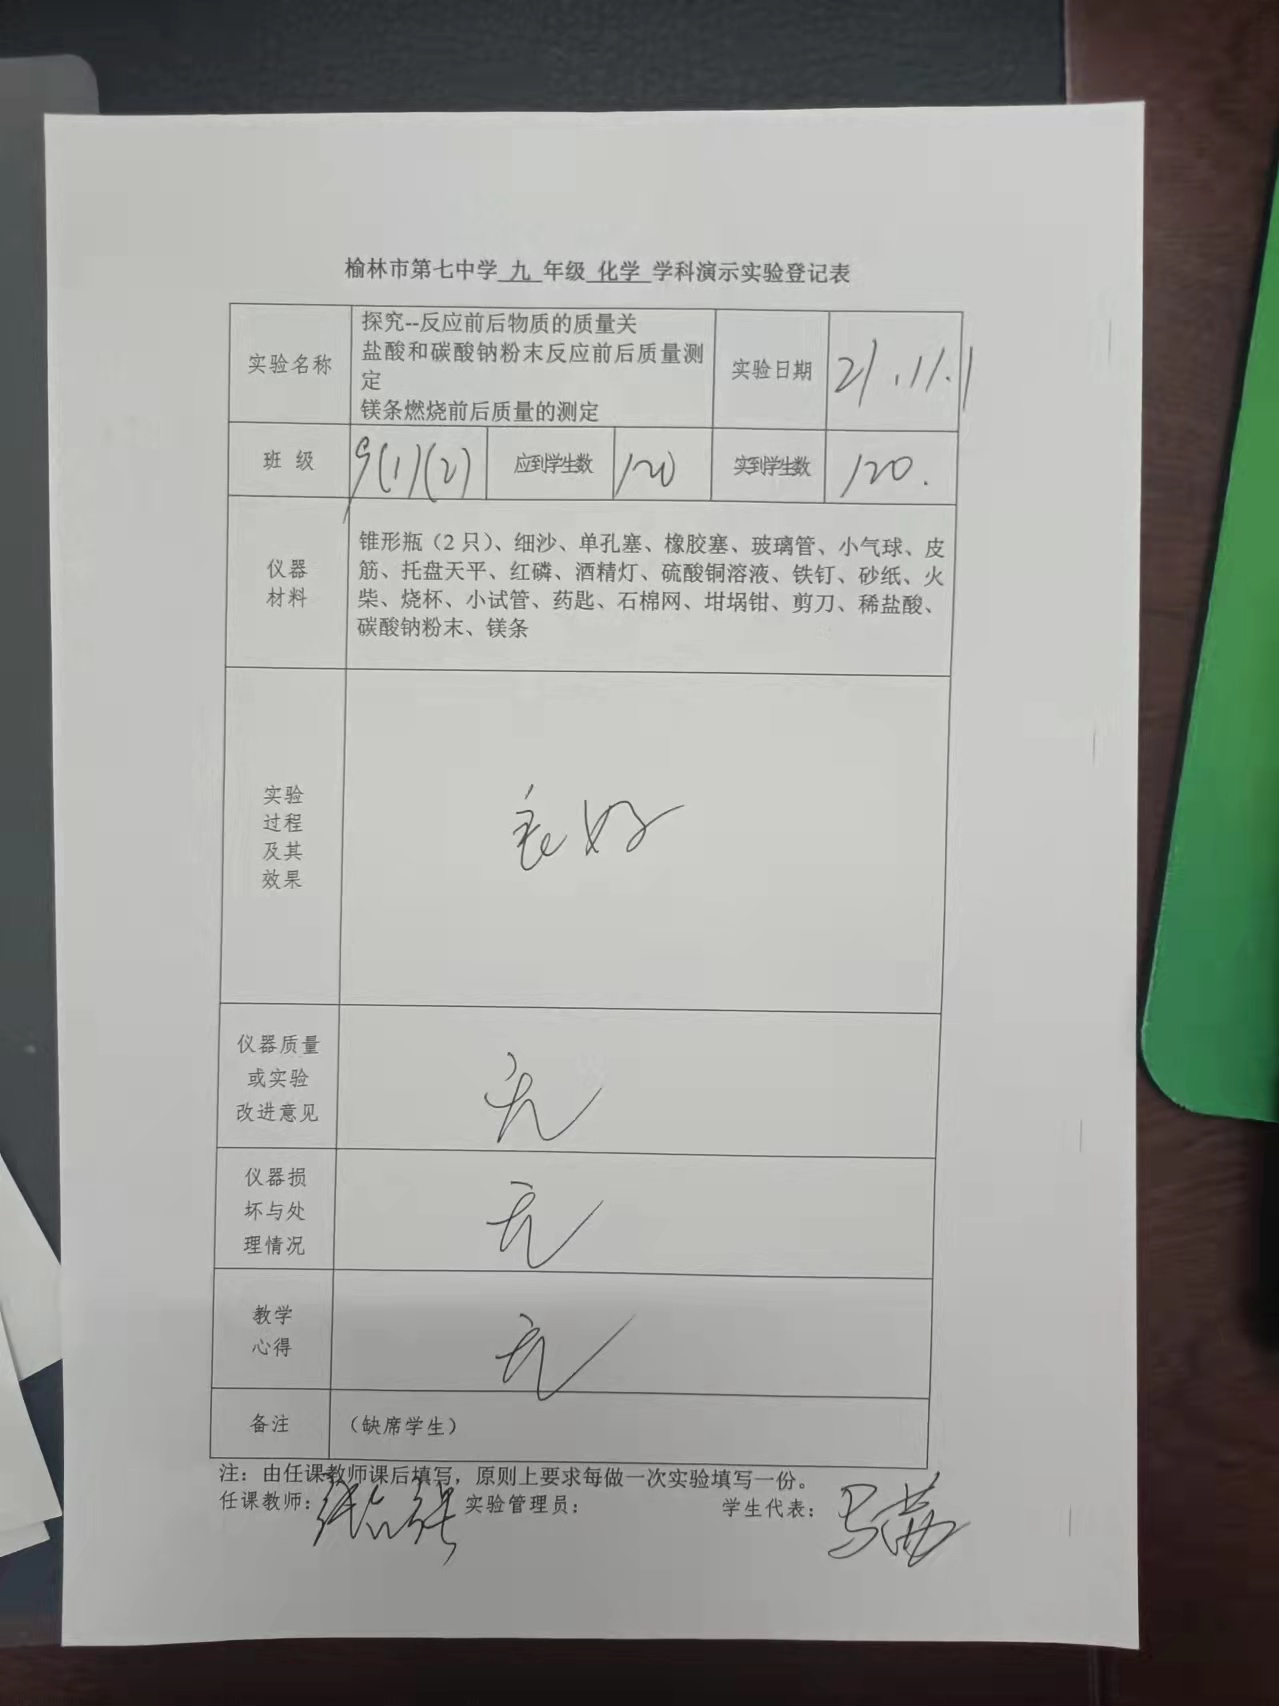 榆林市第七中学 九 年级 化学 学科演示实验登记表
实验名称
探究--反应前后物质的质量关
盐酸和碳酸钠粉末反应前后质量测
定
镁条燃烧前后质量的测定
实验日期
21.11.1
班 级
9(1)(2)
应到学生数
120
实到学生数
120.
仪器
材料
锥形瓶（2 只）、细沙、单孔塞、橡胶塞、玻璃管、小气球、皮
筋、托盘天平、红磷、酒精灯、硫酸铜溶液、铁钉、砂纸、火
柴、烧杯、小试管、药匙、石棉网、坩埚钳、剪刀、稀盐酸、
碳酸钠粉末、镁条
实验
过程
及其
效果
良好
仪器质量
或实验
改进意见
无
仪器损
坏与处
理情况
无
教学
心得
无
备注
（缺席学生）
注：由任课教师课后填写，原则上要求每做一次实验填写一份。
任课教师： 实验管理员： 学生代表：